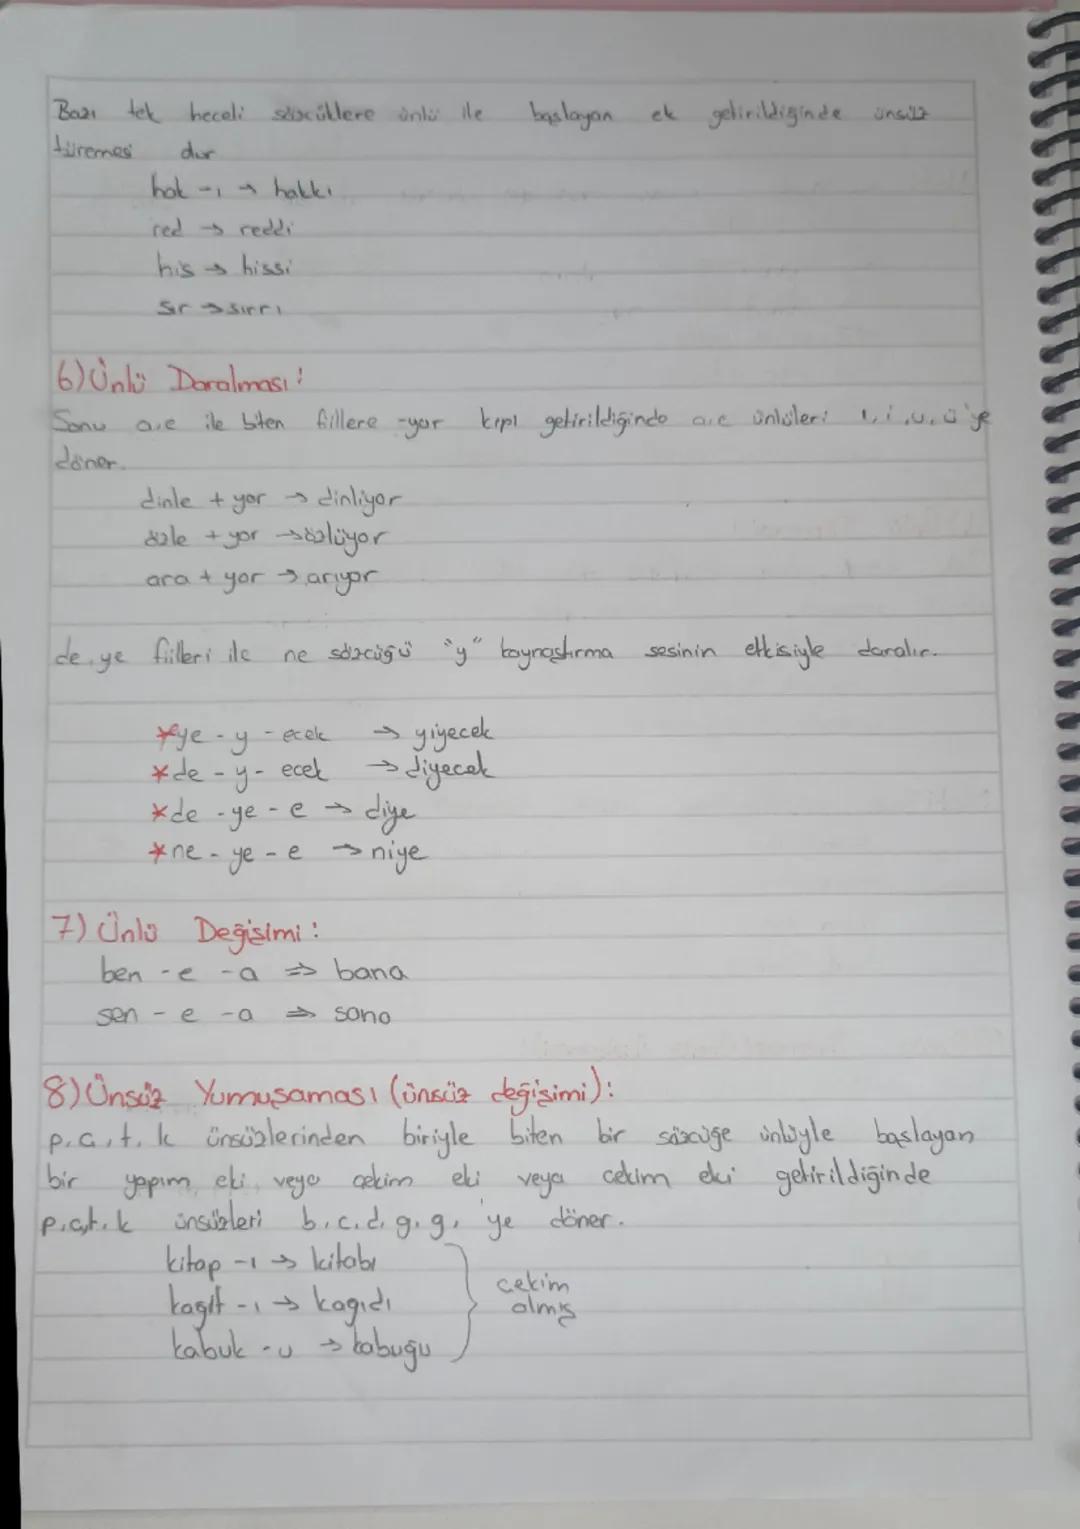 Bazı tek heceli sözcüklere ünlü ile başlayan ek getirildiğinde ünsüz
türemesi dur
hak -ı → hakkı
red → reddi
his → hissi
sır → sırrı
6) Ünlü Daralması:
Sonu a,e ile biten fiillere -yor kipi getirildiğinde a,e ünlüleri ı, i, u, ü'ye
döner.
dinle + yor → dinliyor
özle + yor → özlüyor
ara + yor → arıyor
de, ye fiilleri ile ne sözcüğü "y" kaynaştırma sesinin etkisiyle daralır.
*ye - y - ecek → yiyecek
*de - y - ecek → diyecek
*de - ye - e → diye
*ne - ye - e → niye
7) Ünlü Değişimi:
ben - e - a ⇒ bana
sen - e - a ⇒ sana
8) Ünsüz Yumuşaması (ünsüz değişimi):
p, ç, t, k ünsüzlerinden biriyle biten bir sözcüğe ünlüyle başlayan
bir yapım eki veya çekim eki veya çekim eki getirildiğinde
p,ç,t,k ünsüzleri b, c, d, g, ğ, 'ye döner.
kitap -ı → kitabı
kağıt -ı → kağıdı
kabuk -u → kabuğu
çekim
olmış